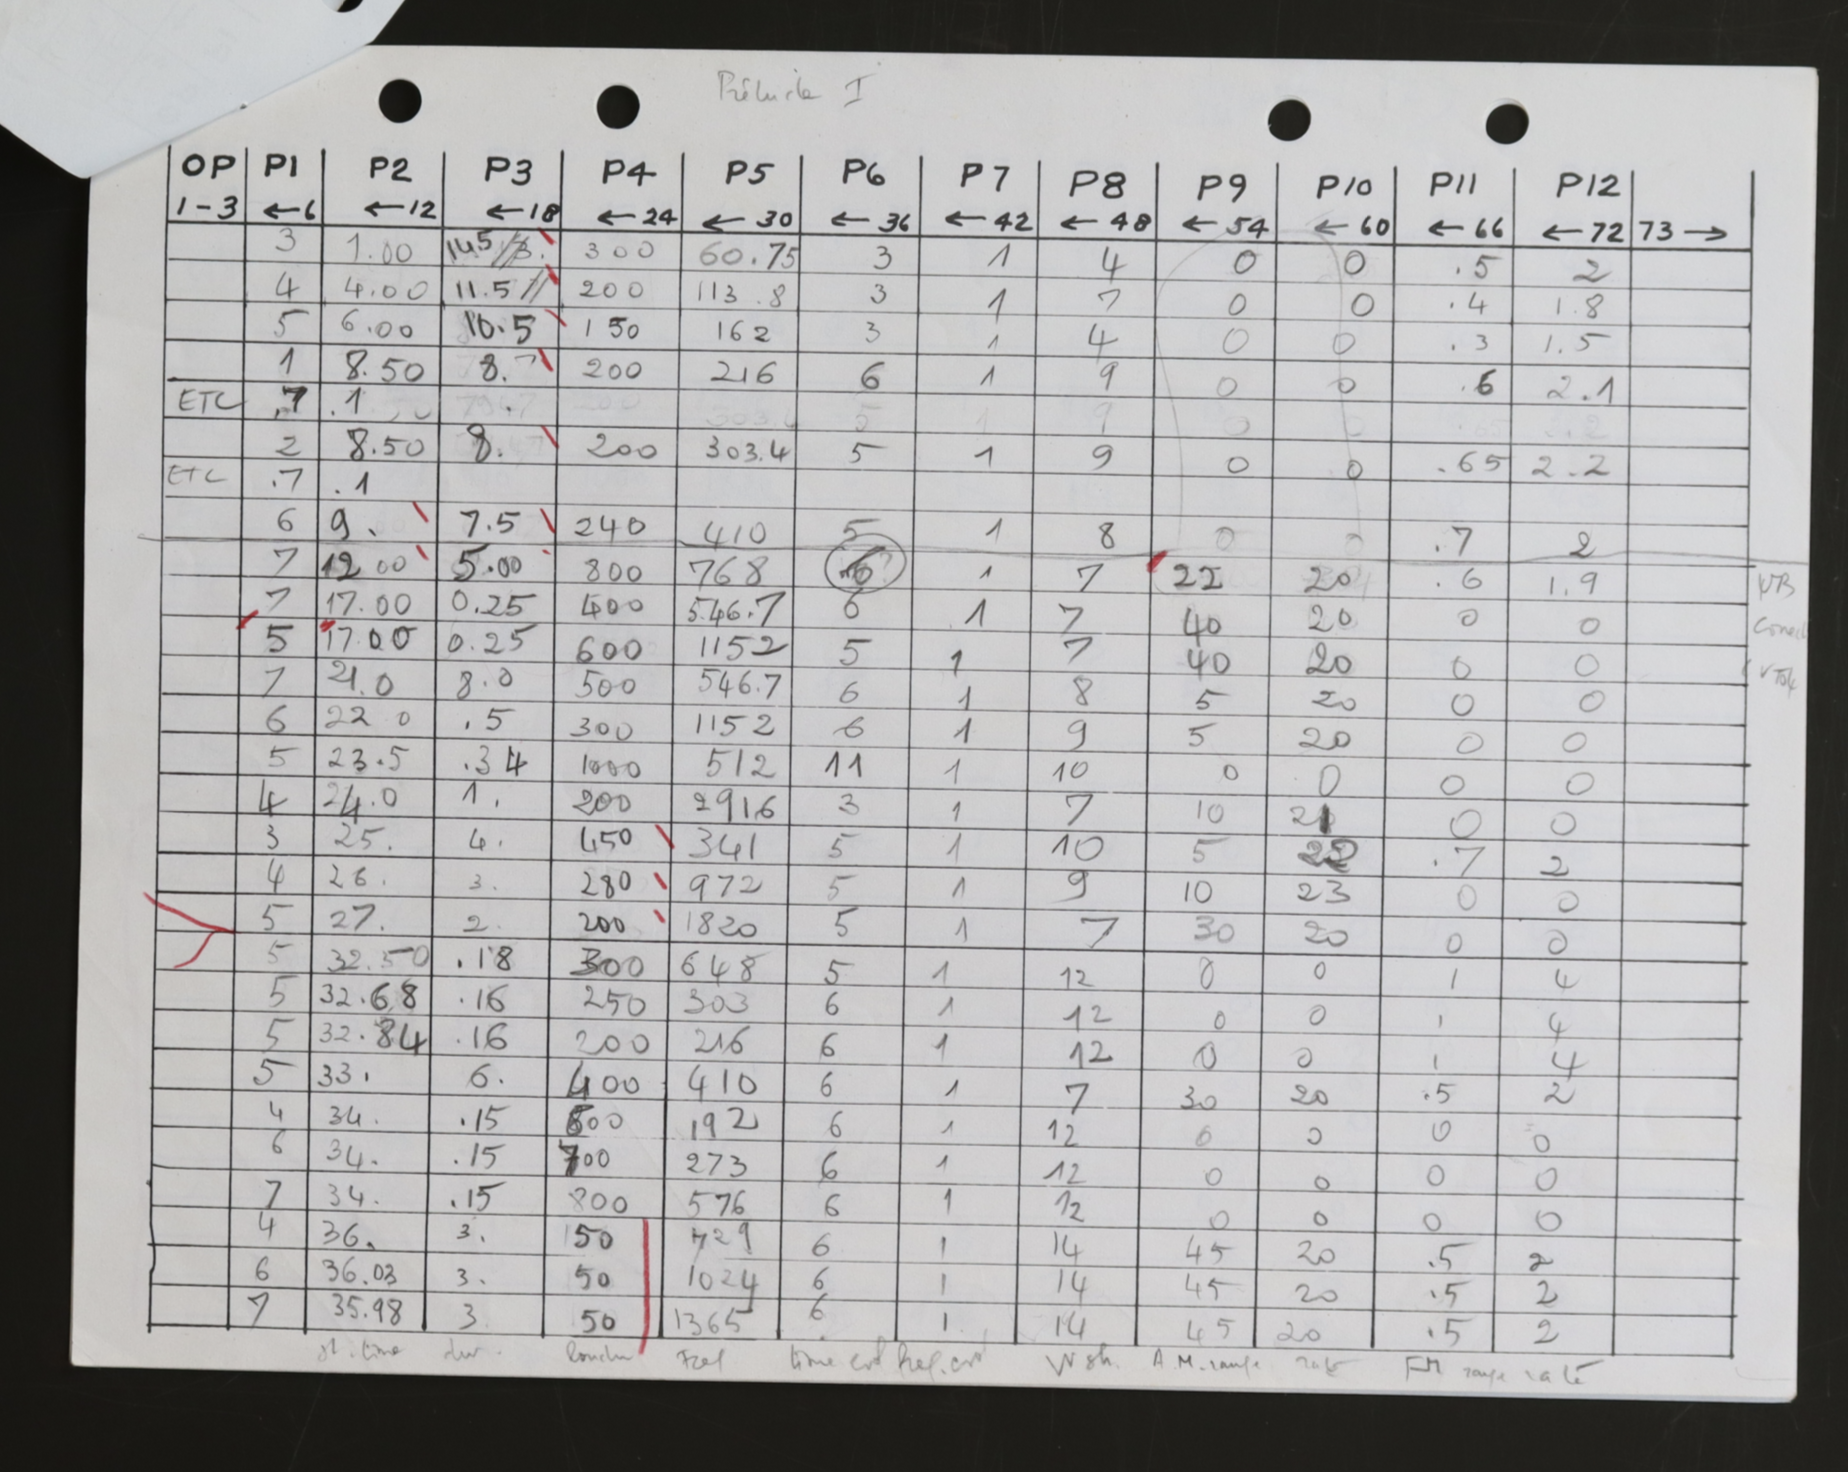 Prélude I
OP P1 P2 P3 P4 P5 P6 P7 P8 P9 P10 P11 P12
1-3 ←6 ←12 ←18 ←24 ←30 ←36 ←42 ←48 ←54 ←60 ←66 ←72 73→
3 1.00 14.5 300 60.75 3 1 4 0 0 .5 2
4 4.00 11.5 200 113.8 3 1 7 0 0 .4 1.8
5 6.00 10.5 150 162 3 1 4 0 0 .3 1.5
1 8.50 8. 200 216 6 1 9 0 0 .6 2.1
ETC .7 .1
2 8.50 8. 200 303.4 5 1 9 0 0 .65 2.2
ETC .7 .1
6 9. 7.5 240 410 5 1 8 0 0 .7 2
7 12.00 5.00 800 768 6 1 7 22 20 .6 1.9
7 17.00 0.25 400 546.7 6 1 7 40 20 0 0
5 17.00 0.25 600 1152 5 1 7 40 20 0 0
7 21.0 8.0 500 546.7 6 1 8 5 20 0 0
6 22 0 .5 300 1152 6 1 9 5 20 0 0
5 23.5 .34 1000 512 11 1 10 0 0 0 0
4 24.0 1. 200 2916 3 1 7 10 21 0 0
3 25. 4. 450 341 5 1 10 5 22 .7 2
4 26. 3. 280 972 5 1 9 10 23 0 0
5 27. 2. 200 1820 5 1 7 30 20 0 0
5 32.50 .18 300 648 5 1 12 0 0 1 4
5 32.68 .16 250 303 6 1 12 0 0 1 4
5 32.84 .16 200 216 6 1 12 0 0 1 4
5 33. 6. 400 410 6 1 7 30 20 .5 2
4 34. .15 600 192 6 1 12 0 0 0 0
6 34. .15 700 273 6 1 12 0 0 0 0
7 34. .15 800 576 6 1 12 0 0 0 0
4 36. 3. 50 729 6 1 14 45 20 .5 2
6 36.03 3. 50 1024 6 1 14 45 20 .5 2
7 35.98 3 50 1365 6 1 14 45 20 .5 2
st. time dur. A.M. range rate FM range rate